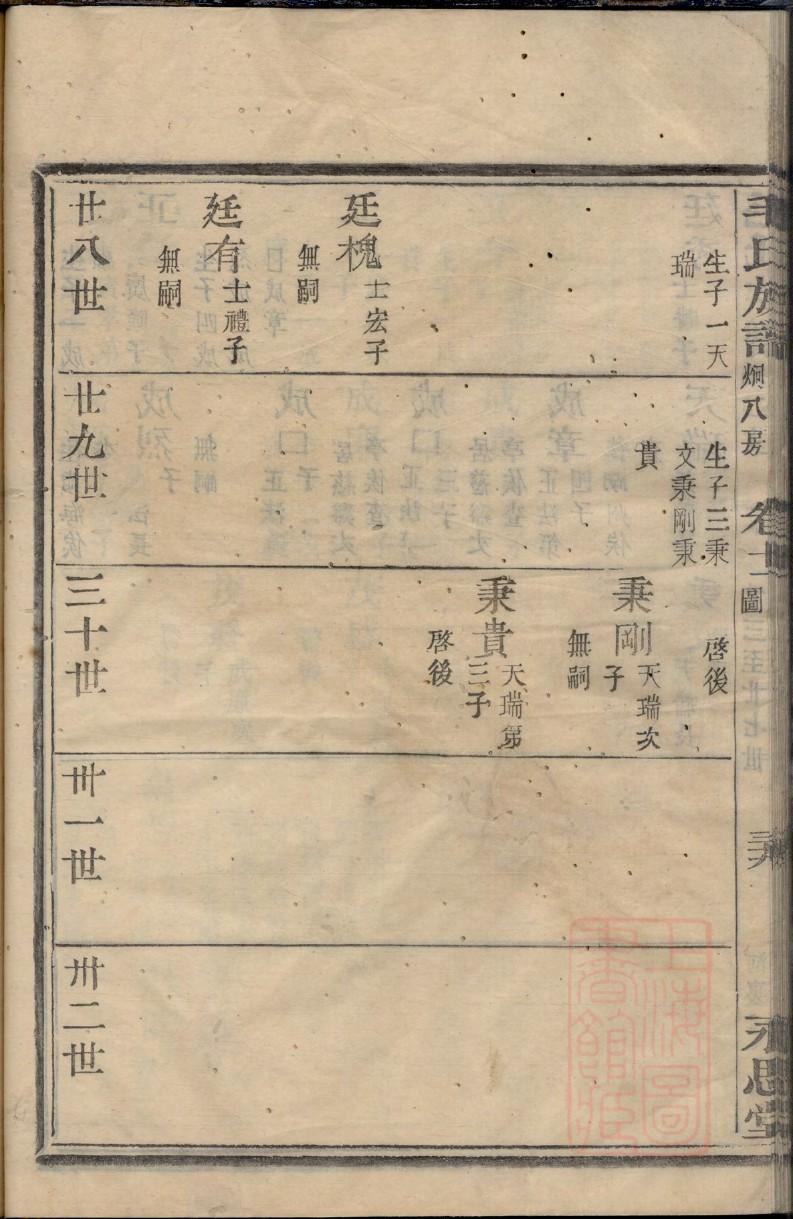 毛氏族譜
炯八房
卷十一
圖
永思堂
生子一天
瑞
廷槐
士宏子
無嗣
廷有
士禮子
無嗣
廿八世
生子三秉
文秉剛秉
貴
廿九世
啓後
秉剛
天瑞次
子
無嗣
秉貴
天瑞第
三子
啓後
三十世
卅一世
卅二世
上海圖
書館藏